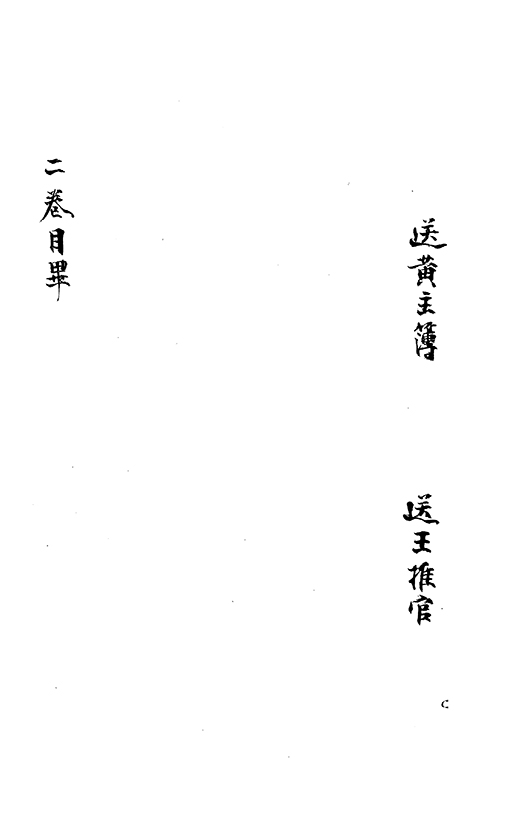 送黄主簿
送王推官
二卷目畢